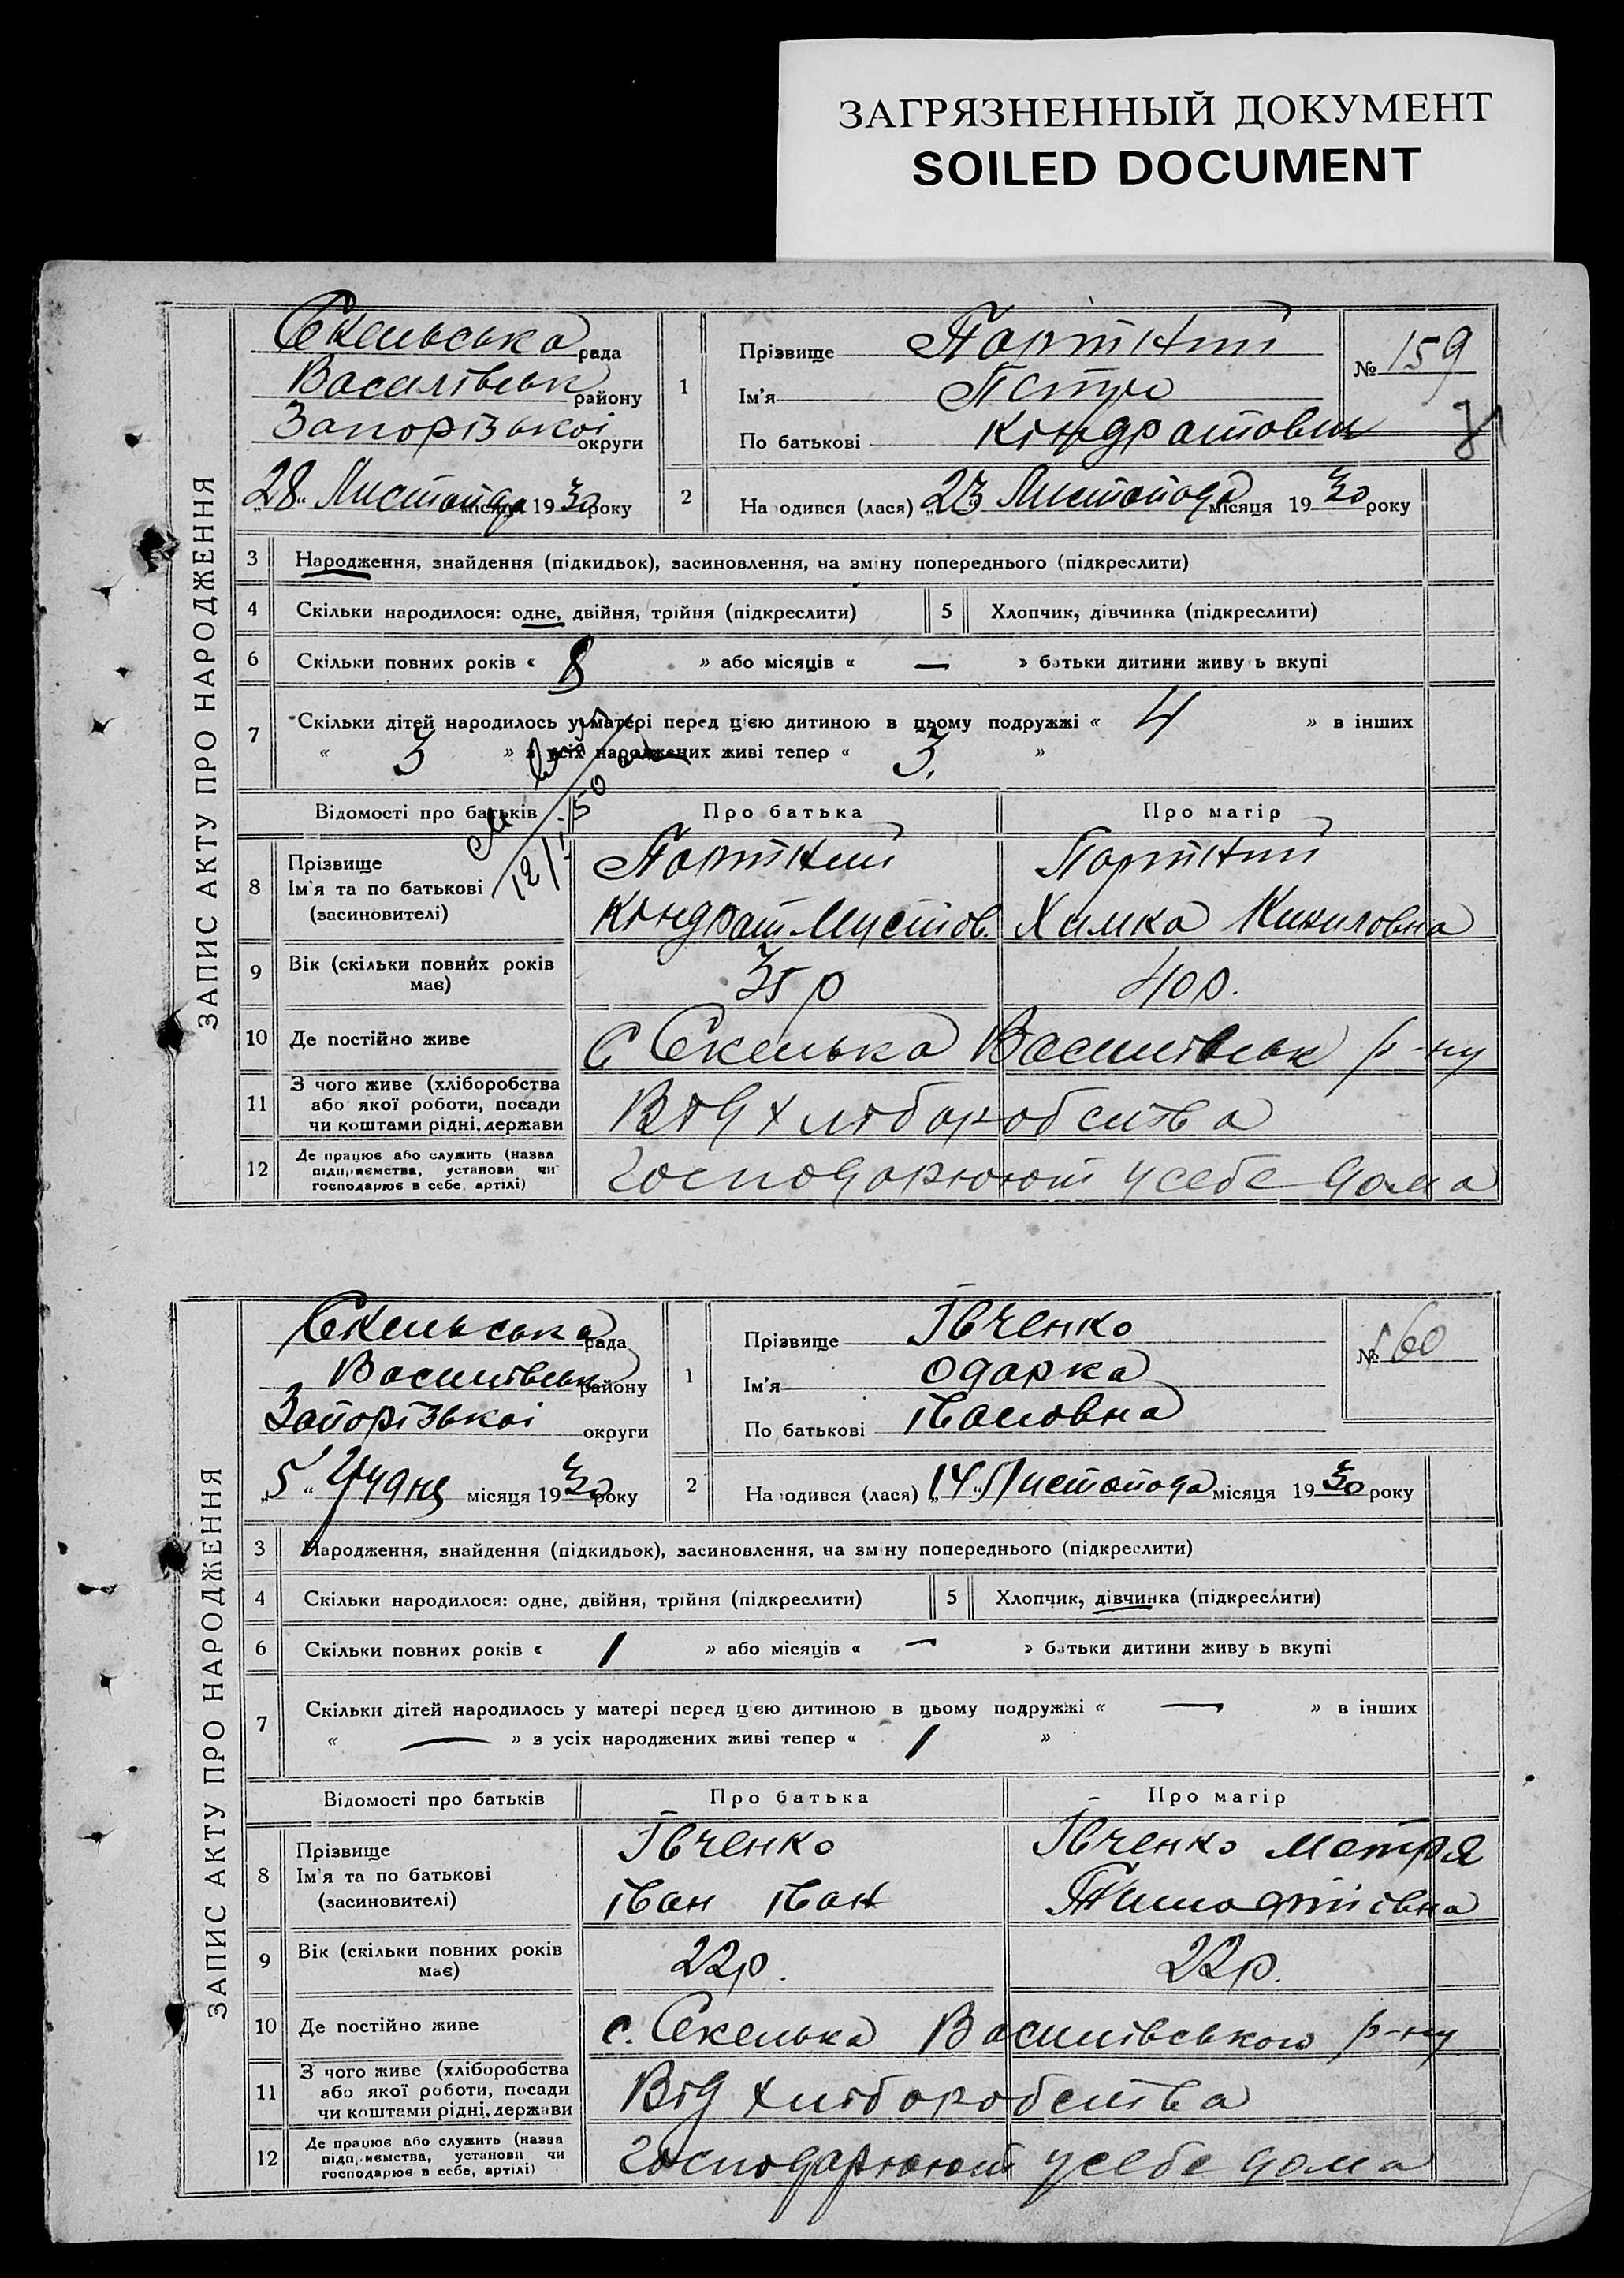 ЗАГРЯЗНЕННЫЙ ДОКУМЕНТ
SOILED DOCUMENT
ЗАПИС АКТУ ПРО НАРОДЖЕННЯ
Скельська рада
Василівськ району
Запорізькоі округи
„28“ Листопада місяця 1930 року
1
Прізвище Портний
Ім'я Петро
По батькові Кіндратович
№ 159
2
На одився (лася) „23“ Листопада місяця 1930 року
3 Народження, знайдення (підкидьок), засиновлення, на зміну попереднього (підкреслити)
4 Скільки народилося: одне, двійня, трійня (підкреслити)
5 Хлопчик, дівчинка (підкреслити)
6 Скільки повних років « 8 » або місяців « — » батьки дитини живу ь вкупі
7 Скільки дітей народилось у матері перед цією дитиною в цьому подружжі « 4 » в інших
« 3 » з усіх народжених живі тепер « 3. »
Відомості про батьків
Про батька
Про матір
8
Прізвище
Ім'я та по батькові
(засиновителі)
Портний
Кіндрат
Портний
Химка
9 Вік (скільки повних років має)
35 р
40 р.
10 Де постійно живе
с Скелька Василівськ р-ну
11 З чого живе (хліборобства
або якої роботи, посади
чи коштами рідні, держави
Від хліборобства
12 Де працює або служить (назва
підприємства, установи чи
господарює в себе, артілі)
Господарюют у себе дома
ЗАПИС АКТУ ПРО НАРОДЖЕННЯ
Скельська рада
Василівськ району
Запорізькоі округи
„5“ Грудня місяця 1930 року
1
Прізвище Івченко
Ім'я Одарка
По батькові Івановна
№ 160
2
На одився (лася) „14“ Листопада місяця 1930 року
3 Народження, знайдення (підкидьок), засиновлення, на зміну попереднього (підкреслити)
4 Скільки народилося: одне, двійня, трійня (підкреслити)
5 Хлопчик, дівчинка (підкреслити)
6 Скільки повних років « 1 » або місяців « — » батьки дитини живу ь вкупі
7 Скільки дітей народилось у матері перед цією дитиною в цьому подружжі « — » в інших
« — » з усіх народжених живі тепер « 1 »
Відомості про батьків
Про батька
Про матір
8
Прізвище
Ім'я та по батькові
(засиновителі)
Івченко
Іван Іван
Івченко Мотря
Тимофіівна
9 Вік (скільки повних років має)
22р.
22р.
10 Де постійно живе
с. Скелька Василівського р-ну
11 З чого живе (хліборобства
або якої роботи, посади
чи коштами рідні, держави
Від хліборобства
12 Де працює або служить (назва
підприємства, установи чи
господарює в себе, артілі)
Господарюют у себе дома